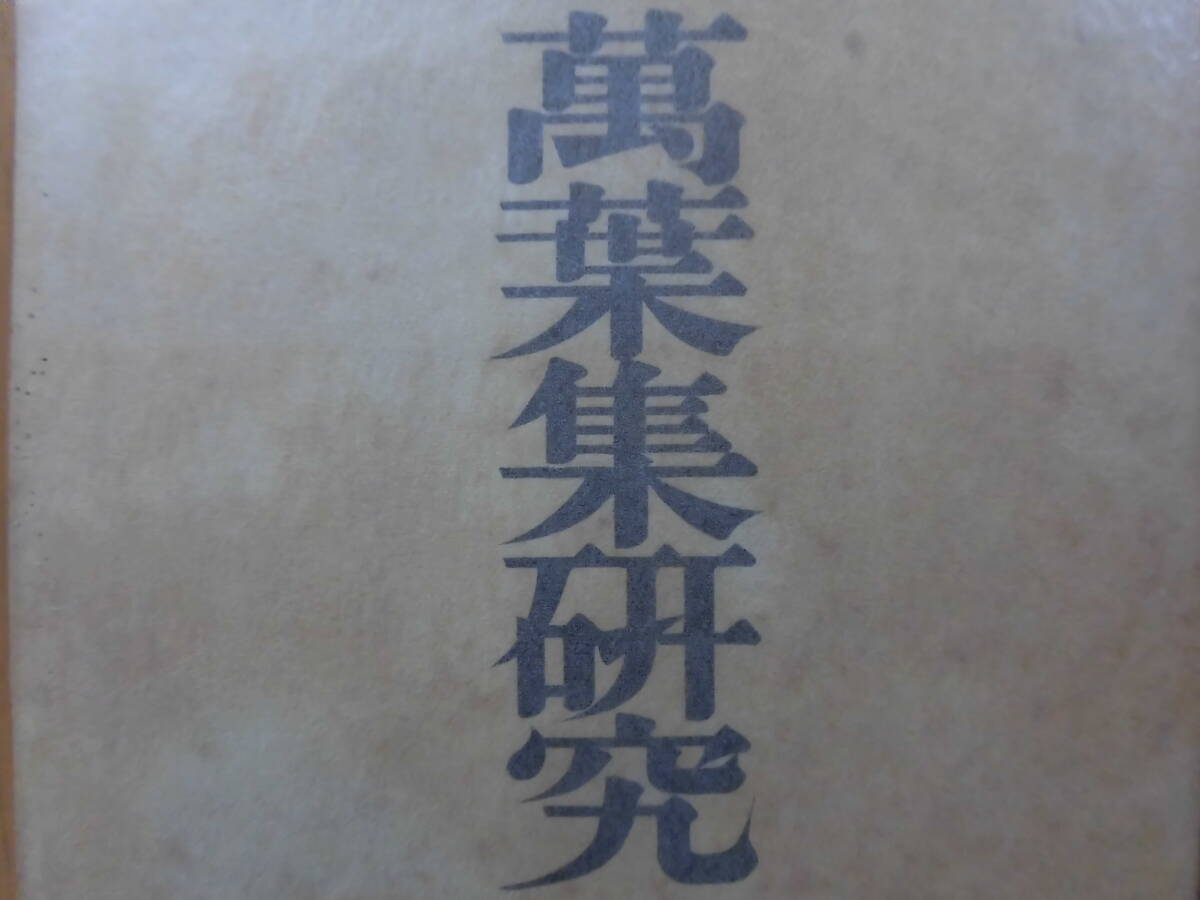 萬葉集研究